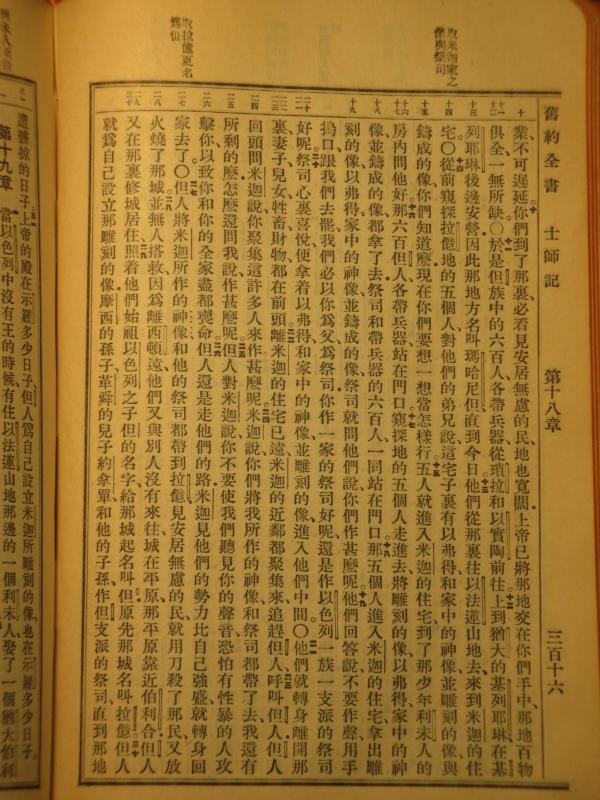 舊約全書 士師記 第十八章 三百十六
取米迦家之像與祭司
取拉億更名爲但
業不可遲延、你們到了那裏必看見安居無慮的民、地也寬闊、上帝已將那地交在你們手中、那地百物
俱全一無所缺。○於是但族中的六百人各帶兵器從瑣拉和以實陶前往、上到猶大的基列耶琳在基
列耶琳後邊安營、因此那地方名叫瑪哈尼但直到今日。他們從那裏往以法蓮山地去、來到米迦的住
宅。○從前窺探拉億地的五個人對他們的弟兄說、這宅子裏有以弗得和家中的神像、並雕刻的像與
鑄成的像、你們知道麽、現在你們要想一想當怎樣行。五人就進入米迦的住宅、到了那少年利未人的
房內問他好。那六百但人各帶兵器站在門口、窺探地的五個人走進去、將雕刻的像、以弗得、家中的神
像、並鑄成的像、都拿了去、祭司和帶兵器的六百人、一同站在門口。那五個人進入米迦的住宅、拿出雕
刻的像、以弗得、家中的神像、並鑄成的像、祭司就問他們說、你們作甚麽呢。他們回答說、不要作聲、用手
摀口、跟我們去罷、我們必以你爲父、爲祭司、你作一家的祭司好呢、還是作以色列一族一支派的祭司
好呢。祭司心裏喜悅、便拿着以弗得和家中的神像、並雕刻的像、進入他們中間。○他們就轉身離開那
裏、妻子兒女牲畜財物都在前頭。離米迦的住宅已遠、米迦的近鄰都聚集來、追趕但人、呼叫但人、但人
回頭問米迦說、你聚集這許多人來作甚麽呢。米迦說、你們將我所作的神像和祭司都帶了去、我還有
所剩的麽、怎麽還問我說作甚麽呢。但人對米迦說、你不要使我們聽見你的聲音、恐怕有性暴的人攻
擊你、以致你和你的全家盡都喪命。但人還是走他們的路、米迦見他們的勢力比自己強盛、就轉身回
家去了。○但人將米迦所作的神像和他的祭司都帶到拉億、見安居無慮的民、就用刀殺了那民、又放
火燒了那城。並無人搭救、因爲離西頓遠、他們又與別人沒有來往、城在平原、那平原靠近伯利合、但人
又在那裏修城居住、照着他們始祖以色列之子但的名字、給那城起名叫但、原先那城名叫拉億。但人
就爲自己設立那雕刻的像、摩西的孫子革舜的兒子約拿單、和他的子孫、作但支派的祭司、直到那地
遭擄掠的日子。上帝的殿在示羅多少日子、但人爲自己設立米迦所雕刻的像、也在示羅多少日子。
第十九章 當以色列中沒有王的時候、有住以法蓮山地那邊的一個利未人、娶了一個猶大伯利